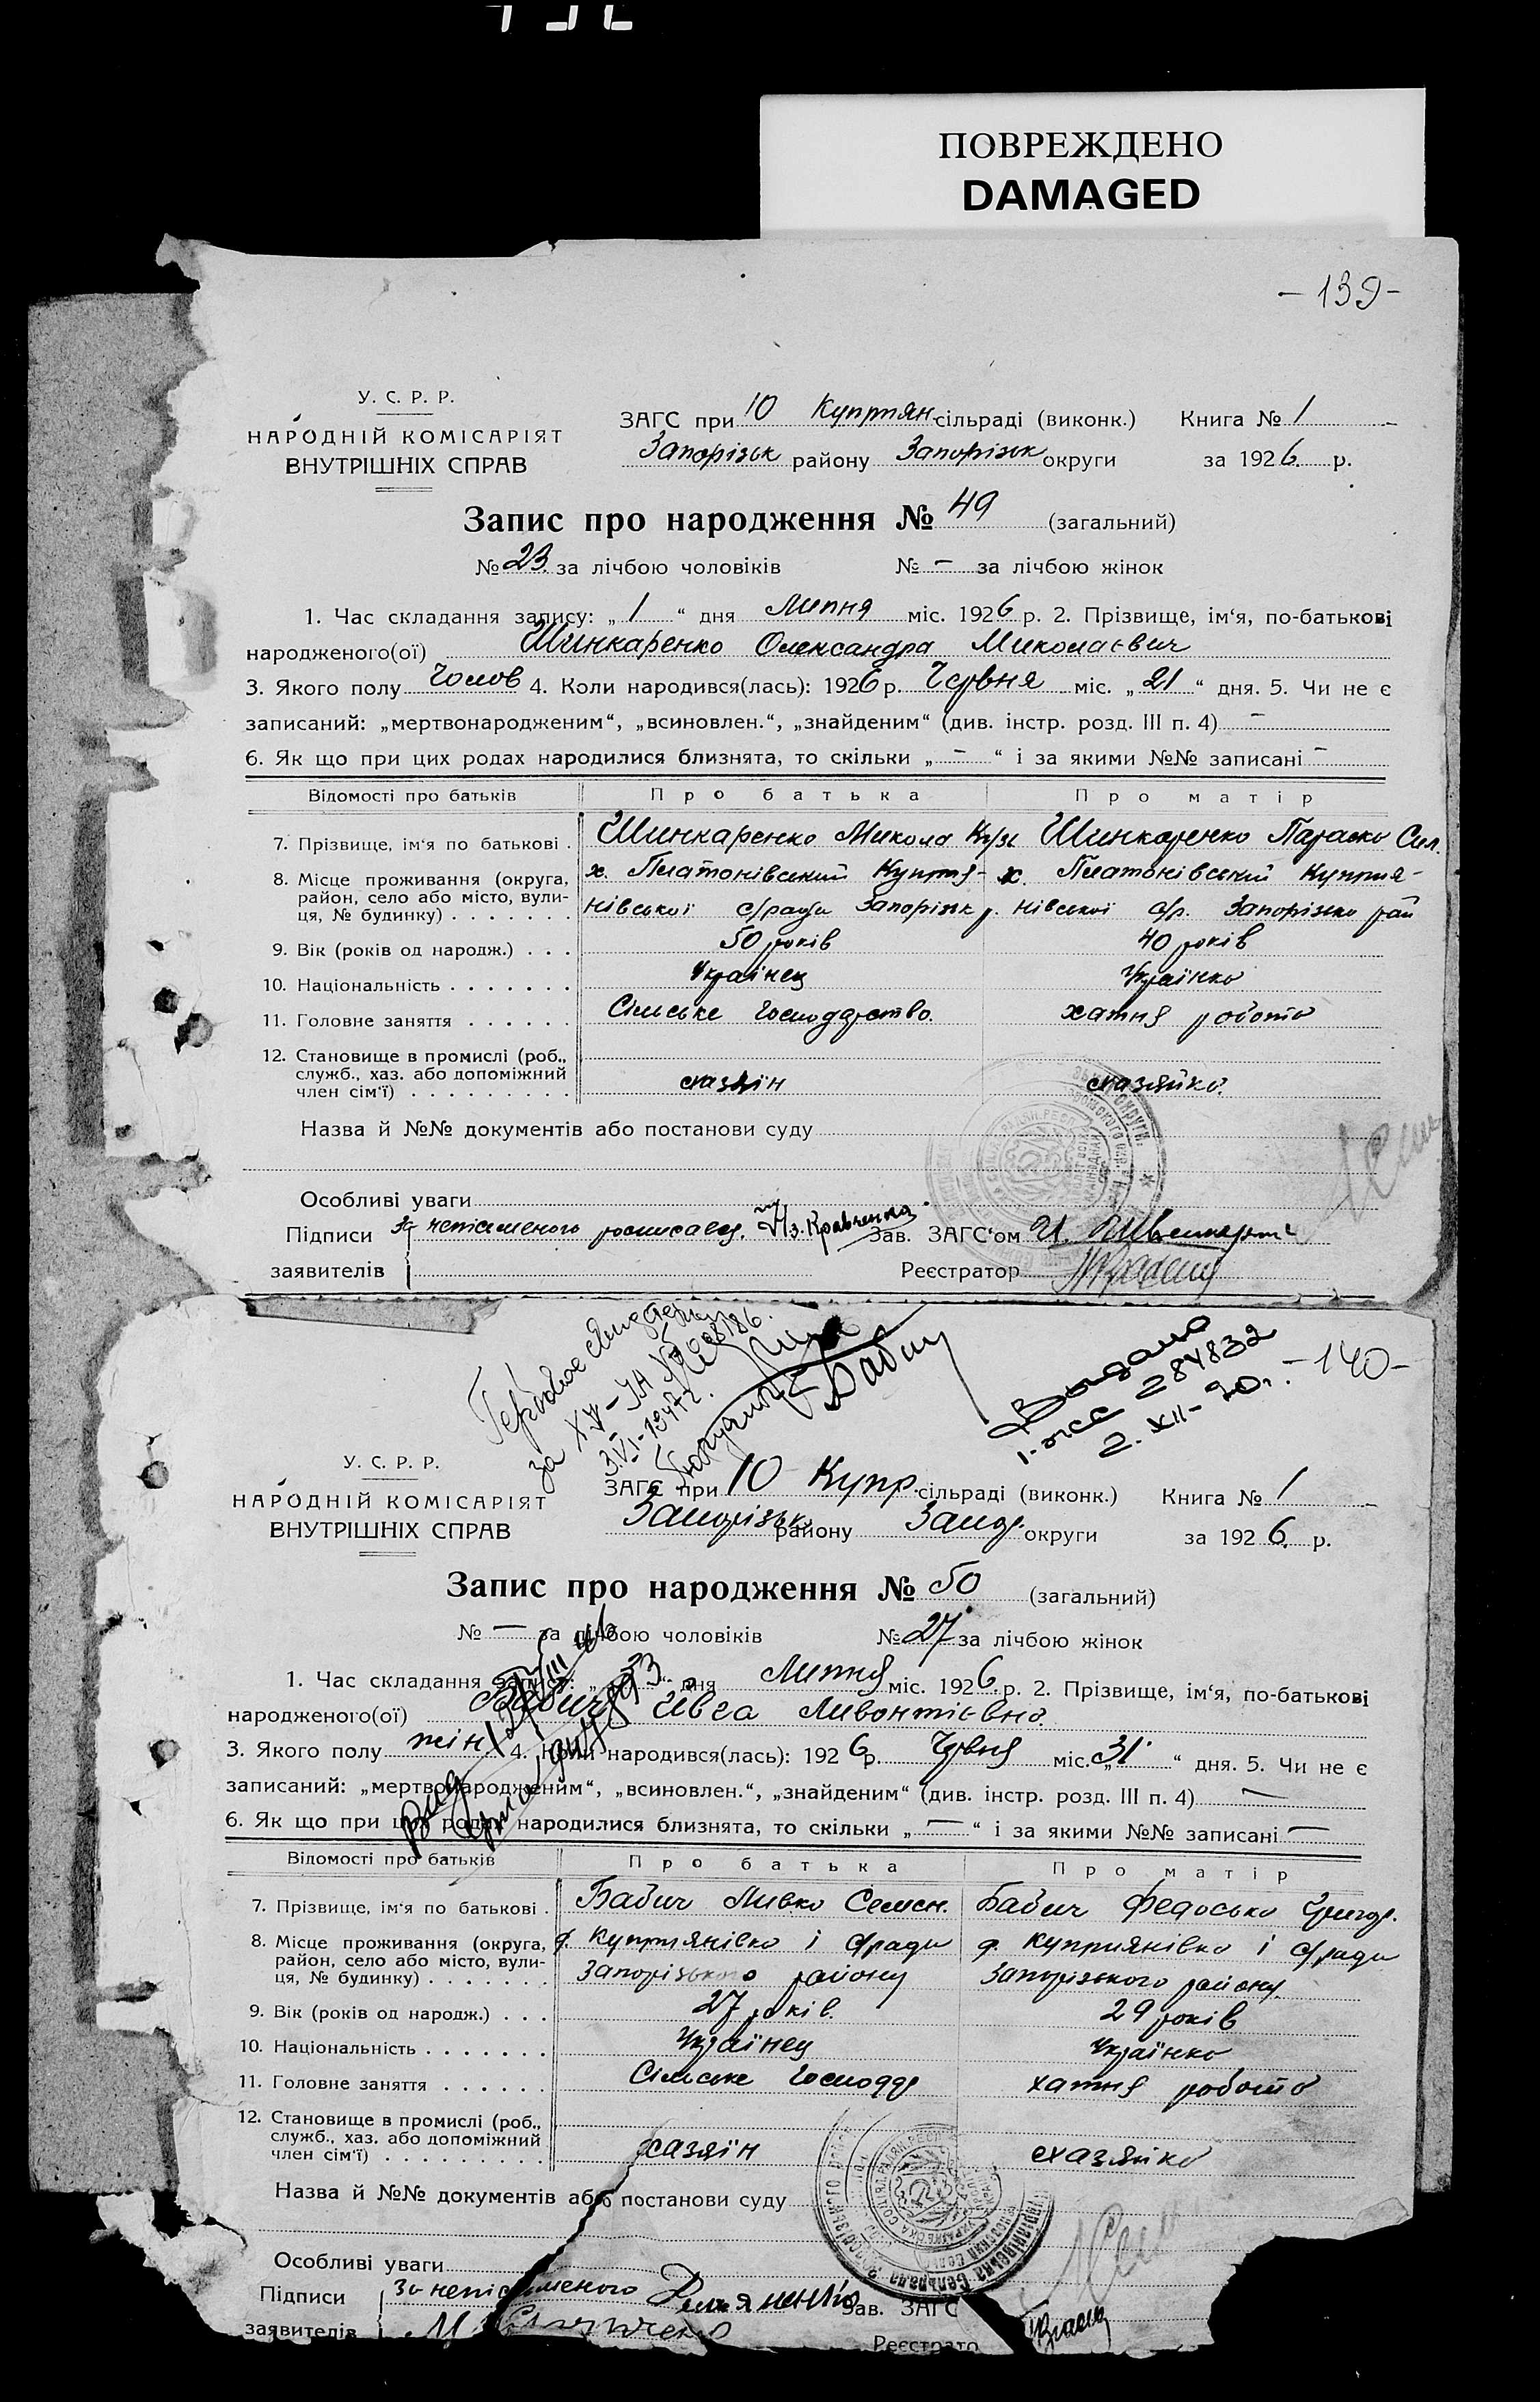 ПОВРЕЖДЕНО
DAMAGED
– 139 –
У. С. Р. Р.
НАРОДНІЙ КОМІСАРІЯТ
ВНУТРІШНІХ СПРАВ
ЗАГС при 10 Куприян. сільраді (виконк.) Книга № 1
Запорізьк району Запорізьк округи за 1926 р.
Запис про народження № 49 (загальний)
№ 23 за лічбою чоловіків № – за лічбою жінок
1. Час складання запису: „ 1 “ дня Липня міс. 1926 р. 2. Прізвище, ім‘я, по-батькові
народженого(ої) Шинкаренко Олександра Миколаєвич
3. Якого полу Чолов 4. Коли народився(лась): 1926 р. Червня міс. „ 21 “ дня. 5. Чи не є
записаний: „мертвонародженим“, „всиновлен.“, „знайденим“ (див. інстр. розд. III п. 4) –
6. Як що при цих родах народилися близнята, то скільки „ – “ і за якими №№ записані –
Відомості про батьків Про батька Про матір
7. Прізвище, ім‘я по батькові . Шинкаренко Микола Шинкаренко Параска Сил.
8. Місце проживання (округа, х. Платонівський Куприя- х. Платонівський Куприя-
район, село або місто, вули-
ця, № будинку) . . . . . . . нівської с/ради Запорізьк р. нівської с/р. Запорізько рай
9. Вік (років од народж.) . . . 50 років 40 років
10. Національність . . . . . . . Українец Українка
11. Головне заняття . . . . . . Сільське Господарство. хатня робота
12. Становище в промислі (роб.,
служб., хаз. або допоміжний
член сім‘ї) . . . . . . . . . хазяїн хазяйка.
Назва й №№ документів або постанови суду
Особливі уваги
Підписи за неписьменого росписався. Кравченко Зав. ЗАГС‘ом
заявителів Реєстратор
Гербовое
за XV–
3.VI–1947 г.
Бабич
Выдано
284832
2. XII– 
– 140 –
У. С. Р. Р.
НАРОДНІЙ КОМІСАРІЯТ
ВНУТРІШНІХ СПРАВ
ЗАГС при 10 Купр. сільраді (виконк.) Книга № 1
Запорізьк району Запор. округи за 1926. р.
Запис про народження № 50 (загальний)
№ – за лічбою чоловіків № 27 за лічбою жінок
1. Час складання запису: „ “ дня Липня міс. 1926. р. 2. Прізвище, ім‘я, по-батькові
народженого(ої) Бабич Ивга Ливонтієвна.
3. Якого полу жін 4. Коли народився(лась): 1926 р. Червня міс. „ 31 “ дня. 5. Чи не є
записаний: „мертвонародженим“, „всиновлен.“, „знайденим“ (див. інстр. розд. III п. 4) –
6. Як що при цих родах народилися близнята, то скільки „ – “ і за якими №№ записані –
Відомості про батьків Про батька Про матір
7. Прізвище, ім‘я по батькові . Бабич Ливко Семен. Бабич Федоська Григор.
8. Місце проживання (округа, Куприянівка і с/ради Куприянівка і с/ради
район, село або місто, вули-
ця, № будинку) . . . . . . . Запорізького району Запорізького району.
9. Вік (років од народж.) . . . 27 років. 29 років
10. Національність . . . . . . . Українец Українка
11. Головне заняття . . . . . . Сільське Господар хатня робота
12. Становище в промислі (роб.,
служб., хаз. або допоміжний
член сім‘ї) . . . . . . . . . хазяїн хазяйка
Назва й №№ документів або постанови суду
Особливі уваги
Підписи За неписьменого Зав. ЗАГС
заявителів Реєстрато